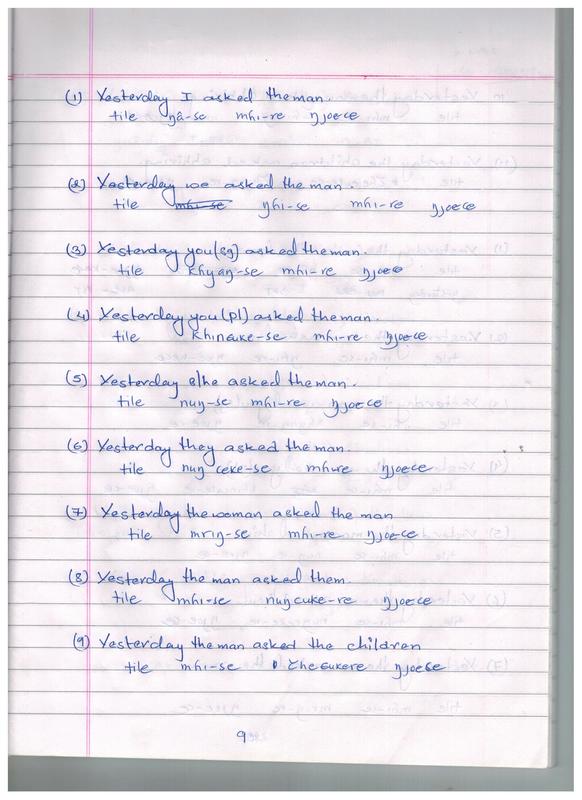 (1) Yesterday I asked the man.
tile ŋâ-se mɦi-re ŋjoece
(2) Yesterday we asked the man.
tile mɦi-se ŋɦi-se mɦi-re ŋjoece
(3) Yesterday you(sg) asked the man.
tile khyaŋ-se mɦi-re ŋjoce
(4) Yesterday you(pl) asked the man.
tile khincuke-se mɦi-re ŋjoece
(5) Yesterday s/he asked the man.
tile nuŋ-se mɦi-re ŋjoece
(6) Yesterday they asked the man.
tile nuŋ ceke-se mɦire ŋjoece
(7) Yesterday the woman asked the man
tile mriŋ-se mɦi-re ŋjoece
(8) Yesterday the man asked them.
tile mɦi-se nuŋcuke-re ŋjoece
(9) Yesterday the man asked the children
tile mɦi-se ŋjoece
9